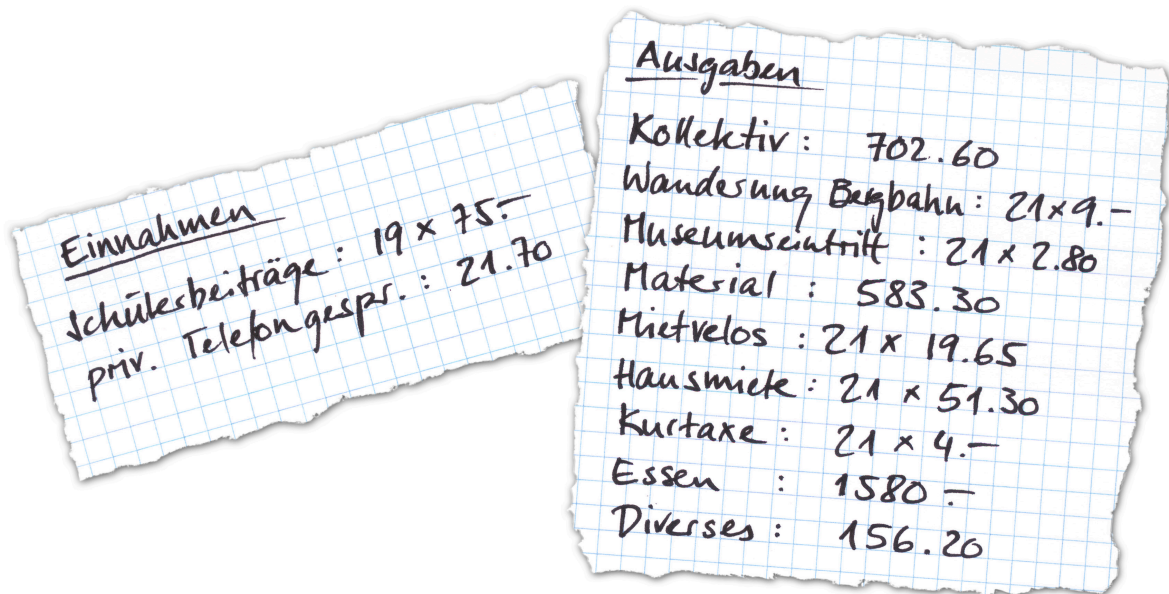 Einnahmen
Schülerbeiträge : 19 × 75.–
priv. Telefongespr. : 21.70
Ausgaben
Kollektiv : 702.60
Wanderung Bergbahn : 21×9.–
Museumseintritt : 21 × 2.80
Material : 583.30
Mietvelos : 21 × 19.65
Hausmiete : 21 × 51.30
Kurtaxe : 21 × 4.–
Essen : 1580.–
Diverses : 156.20